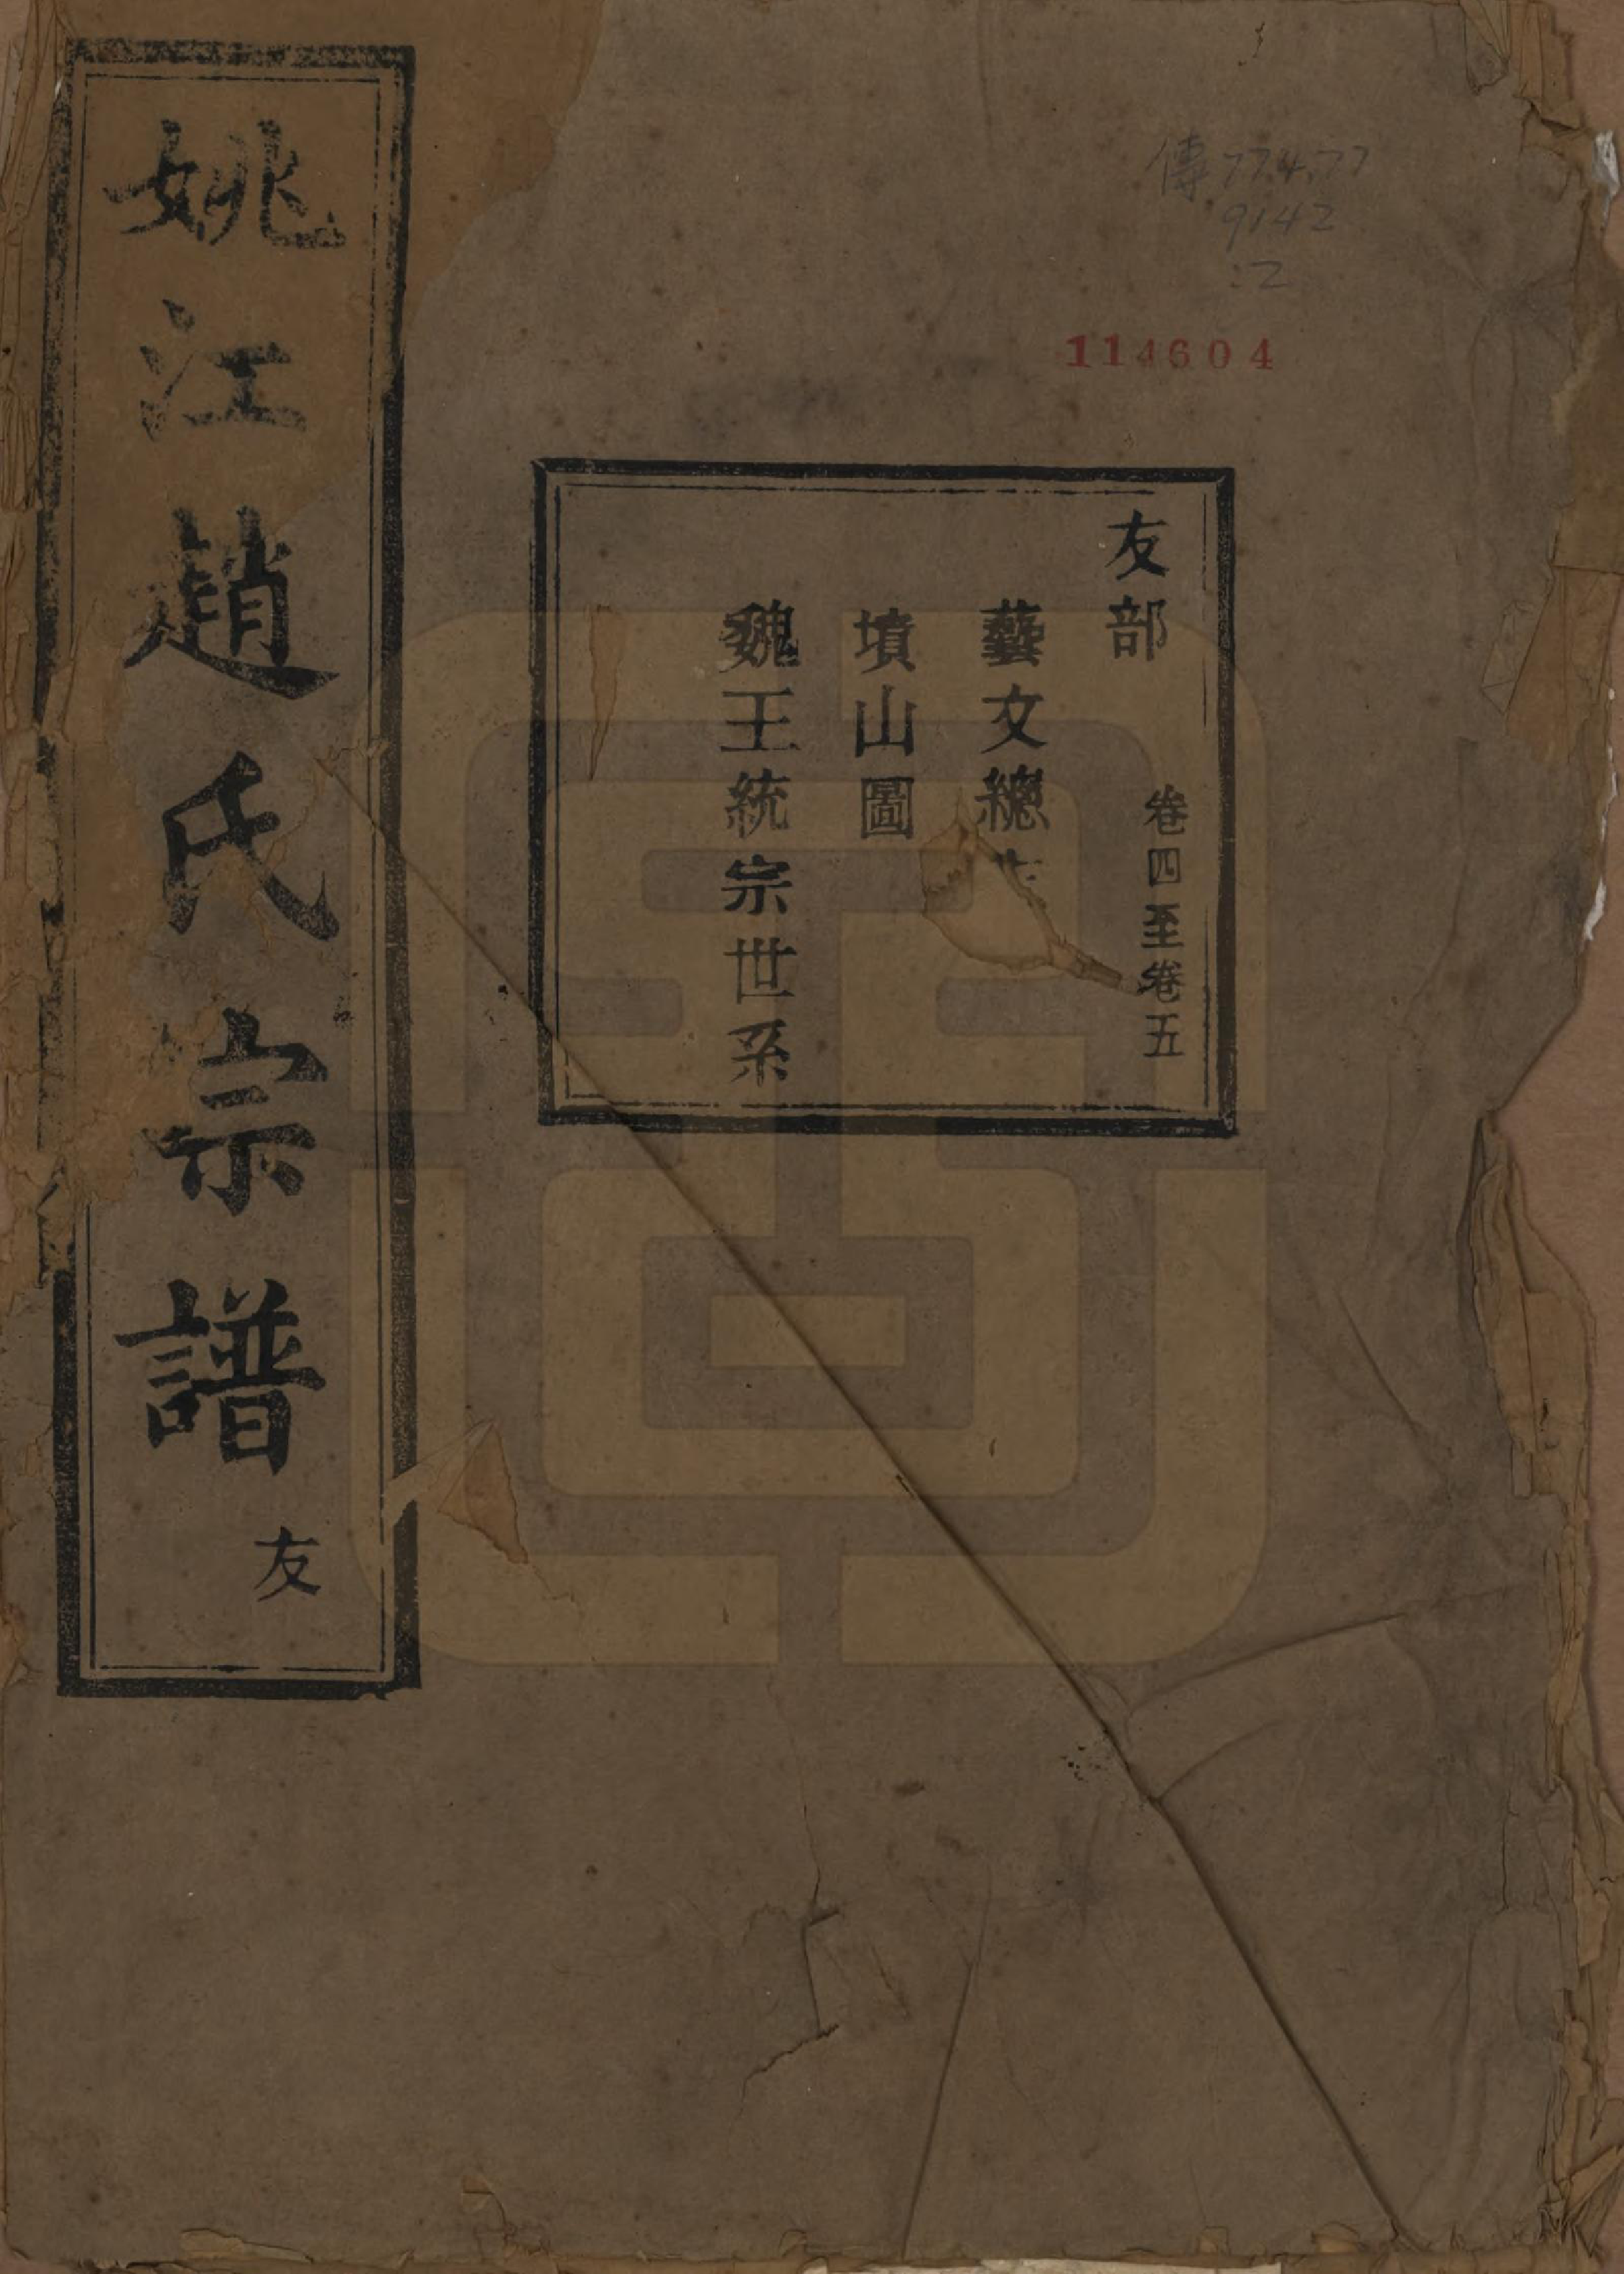 傳 774.77
9142
:2
114604
友部 卷四至卷五
藝文總
墳山圖
魏王統宗世系
姚江趙氏宗譜 友